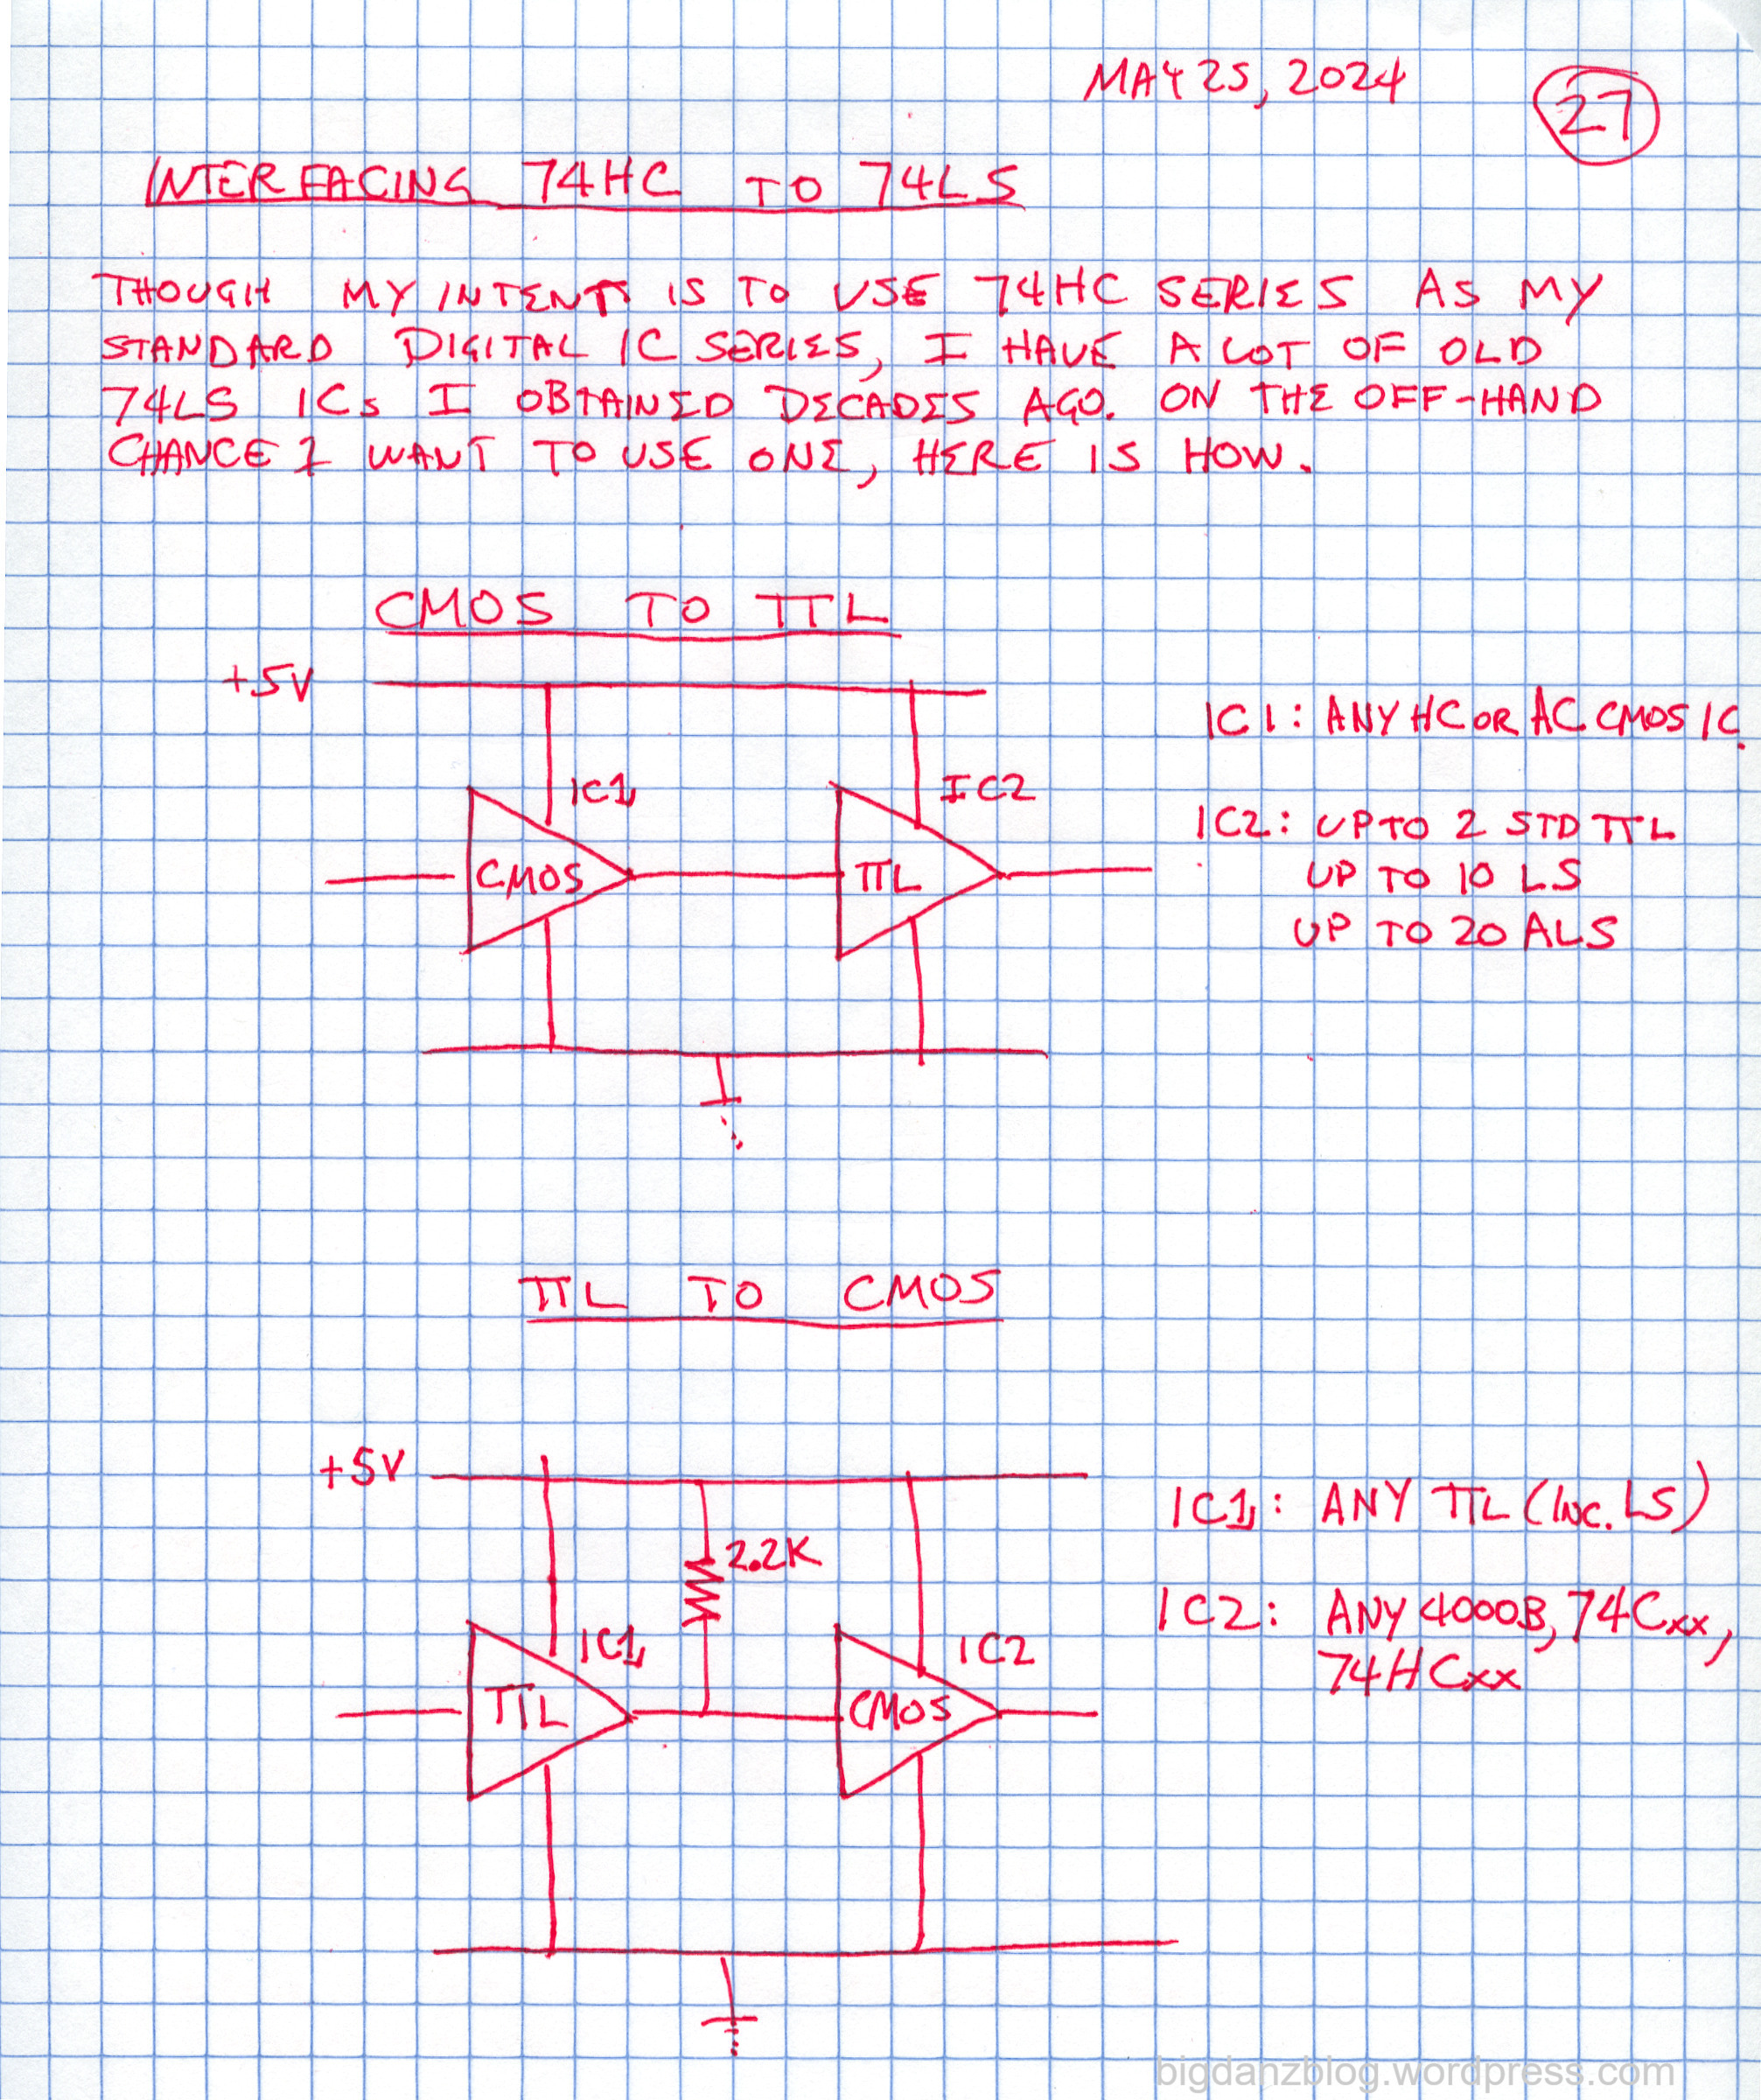 MAY 25, 2024
27
INTERFACING 74HC TO 74LS
THOUGH MY INTENT IS TO USE 74HC SERIES AS MY
STANDARD DIGITAL IC SERIES, I HAVE A LOT OF OLD
74LS ICs I OBTAINED DECADES AGO. ON THE OFF-HAND
CHANCE I WANT TO USE ONE, HERE IS HOW.
CMOS TO TTL
+5V
IC1: ANY HC OR AC CMOS IC.
IC1
IC2
IC2: UP TO 2 STD TTL
CMOS
TTL
UP TO 10 LS
UP TO 20 ALS
TTL TO CMOS
+5V
IC1: ANY TTL (INC. LS)
2.2K
IC1
IC2
IC2: ANY 4000B, 74Cxx,
74HCxx
TTL
CMOS
bigdanzblog.wordpress.com